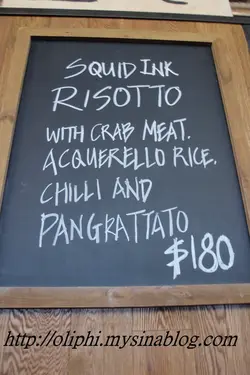 SQUID INK
RISOTTO
WITH CRAB MEAT.
ACQUERELLO RICE.
CHILLI AND
PANGRATTATO
$180
http://oliphi.mysinablog.com/